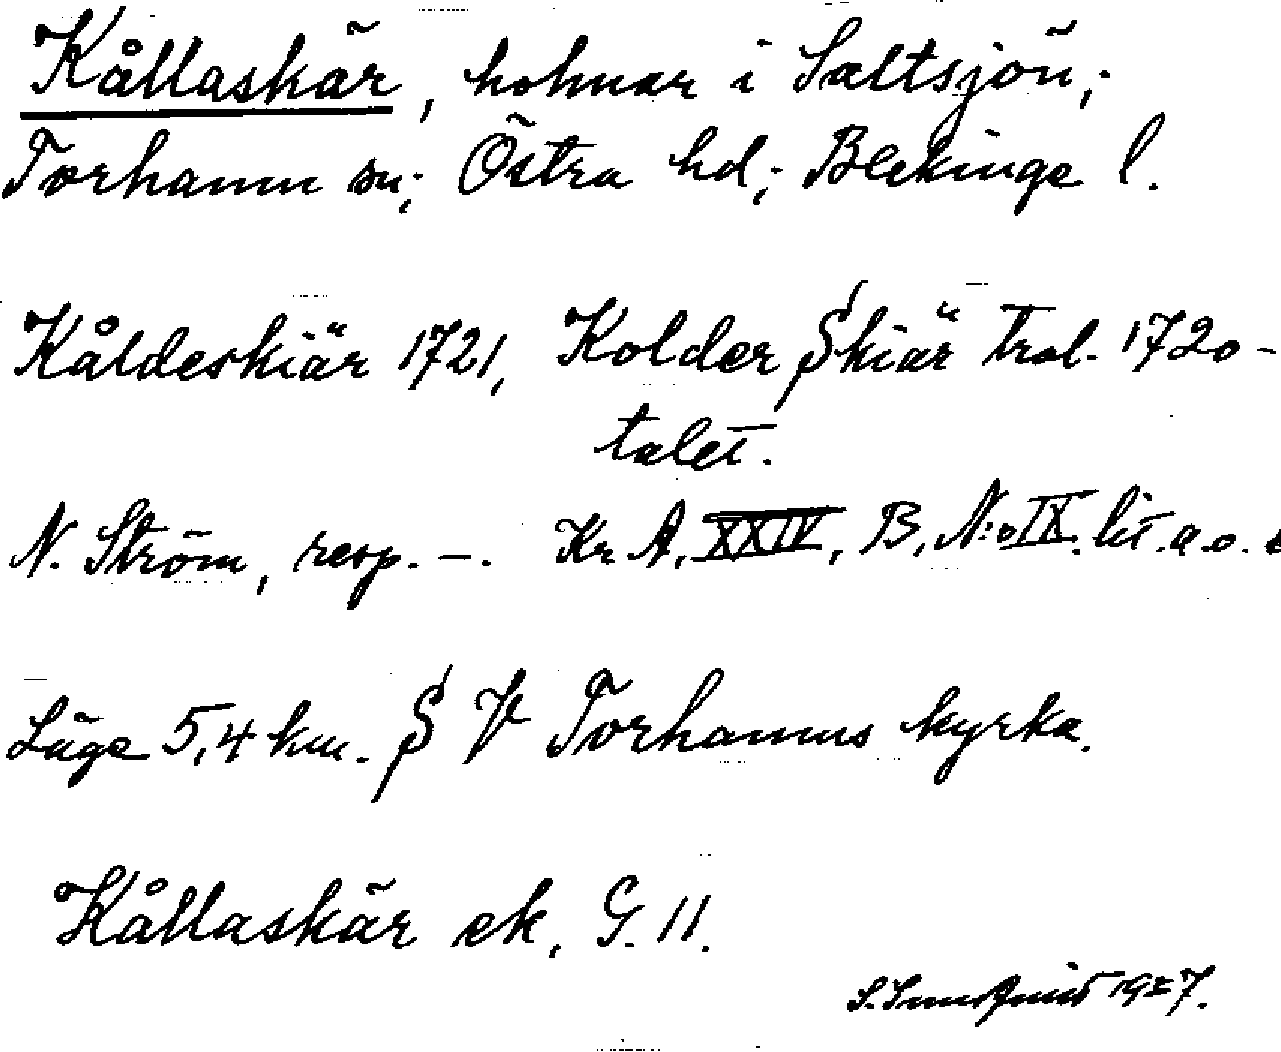 Kållaskär, holmar i Saltsjön;
Torhamn sn; Östra hd; Blekinge l.
Kåldeskiär 1721, Kolder Skiär trol. 1720-
talet.
N. Ström, resp. —. Kr. A. XXIV, B, N:o IX. lit. a. o.
Läge 5,4 km. S V Torhamns kyrka.
Kållaskär ek, G. 11.
1927.